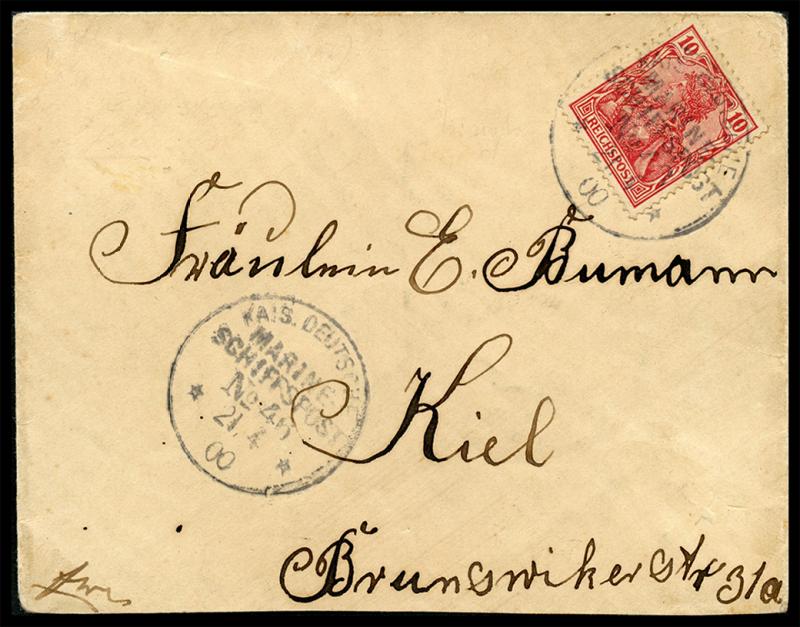 10
10
REICHSPOST
MARINE
SCHIFFSPOST
00
Fräulein E. Bumann
KAIS. DEUTSCHE
MARINE-
SCHIFFSPOST
No 46
21. 4
00
Kiel
Brunswikerstr 31a